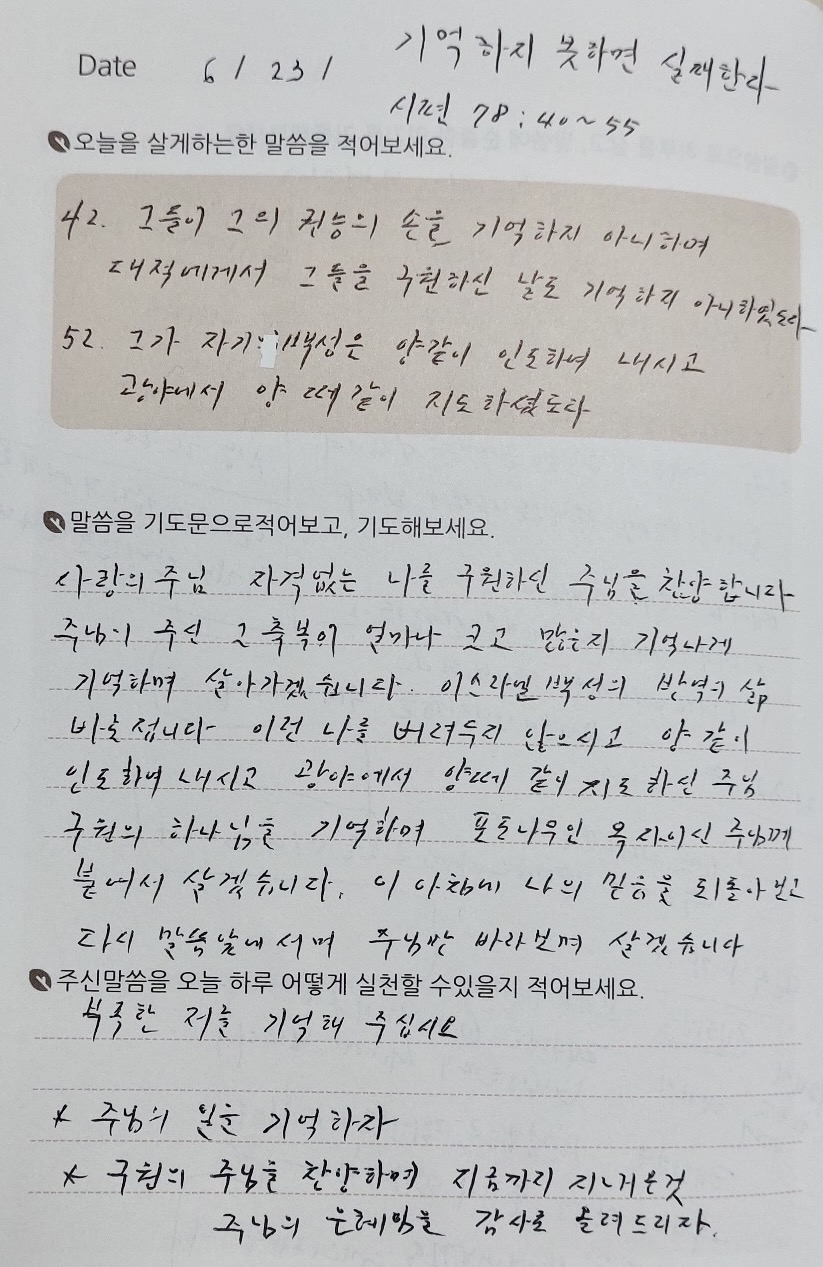 Date 6 / 23 /
기억하지 못하면 실패한다
시편 78:40~55
오늘을 살게하는한 말씀을 적어보세요.
42. 그들이 그의 권능의 손을 기억하지 아니하며
대적에게서 그들을 구원하신 날도 기억하지 아니하였도다
52. 그가 자기 백성은 양같이 인도하여 내시고
광야에서 양 떼 같이 지도하셨도다
말씀을 기도문으로적어보고, 기도해보세요.
사랑의 주님 자격없는 나를 구원하신 주님을 찬양합니다
주님이 주신 그 축복이 얼마나 크고 많은지 기억나게
기억하며 살아가겠습니다. 이스라엘 백성의 반역의 삶
바로 접니다 이런 나를 버려두지 않으시고 양 같이
인도하여 내시고 광야에서 양떼 같이 지도하신 주님
구원의 하나님을 기억하며 포도나무인 목자이신 주님께
붙어서 살겠습니다. 이 아침에 나의 믿음을 되돌아보고
다시 말씀앞에 서며 주님만 바라보며 살겠습니다
주신말씀을 오늘 하루 어떻게 실천할 수있을지 적어보세요.
부족한 저를 기억해 주십시요
* 주님의 일을 기억하자
* 구원의 주님을 찬양하며 지금까지 지내온것
주님의 은혜임을 감사로 올려드리자.